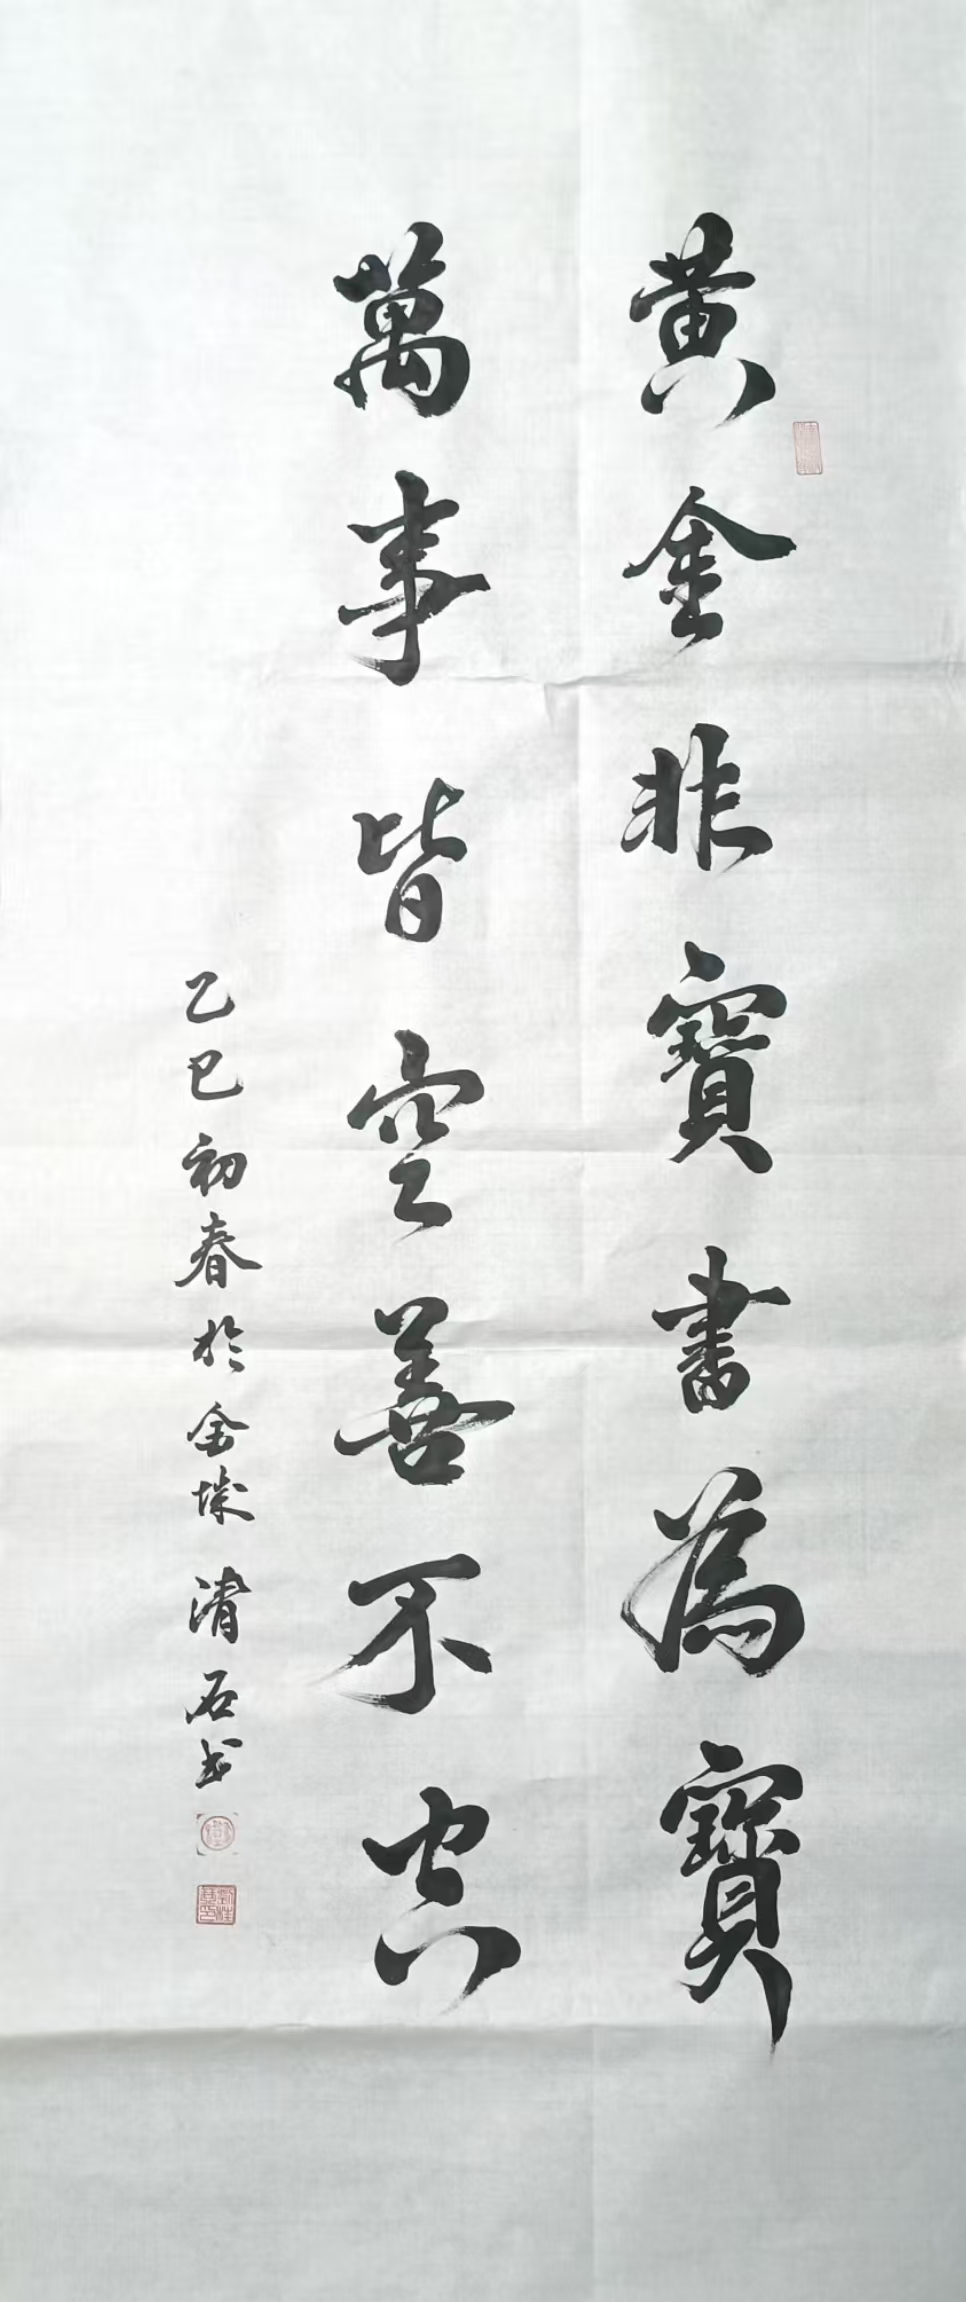 黄金非寶書為寶
萬事皆空善不空
乙巳初春於金城清石书